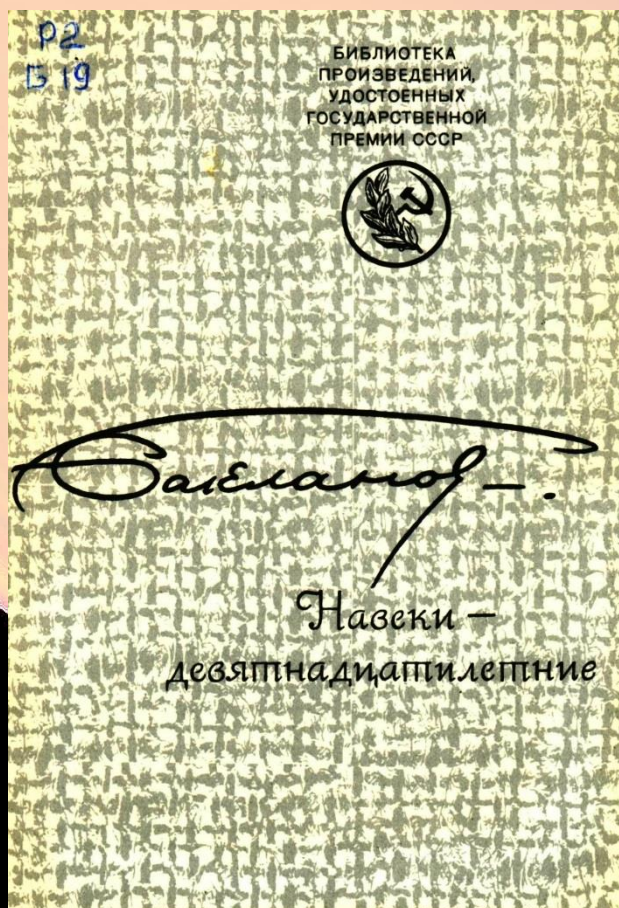 Р2
Б 19
БИБЛИОТЕКА
ПРОИЗВЕДЕНИЙ,
УДОСТОЕННЫХ
ГОСУДАРСТВЕННОЙ
ПРЕМИИ СССР
Бакланов Г.
Навеки —
девятнадцатилетние